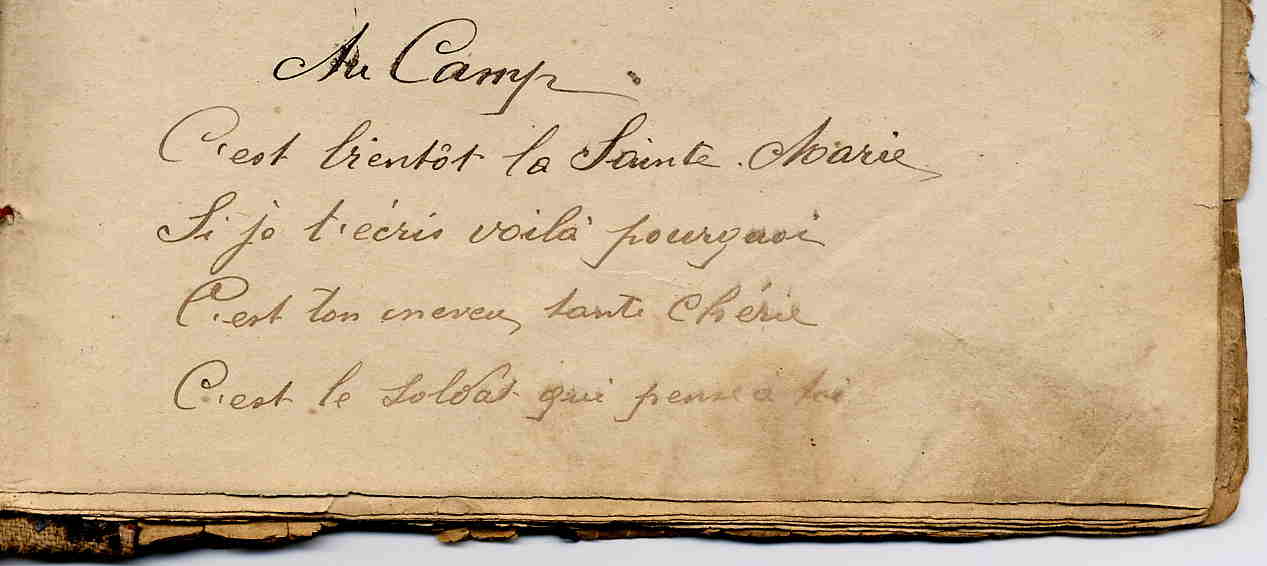 Au Camp
C'est bientôt la Sainte Marie
Si je t'écris voilà pourquoi
C'est ton neveu, tante chérie
C'est le soldat qui pense à toi